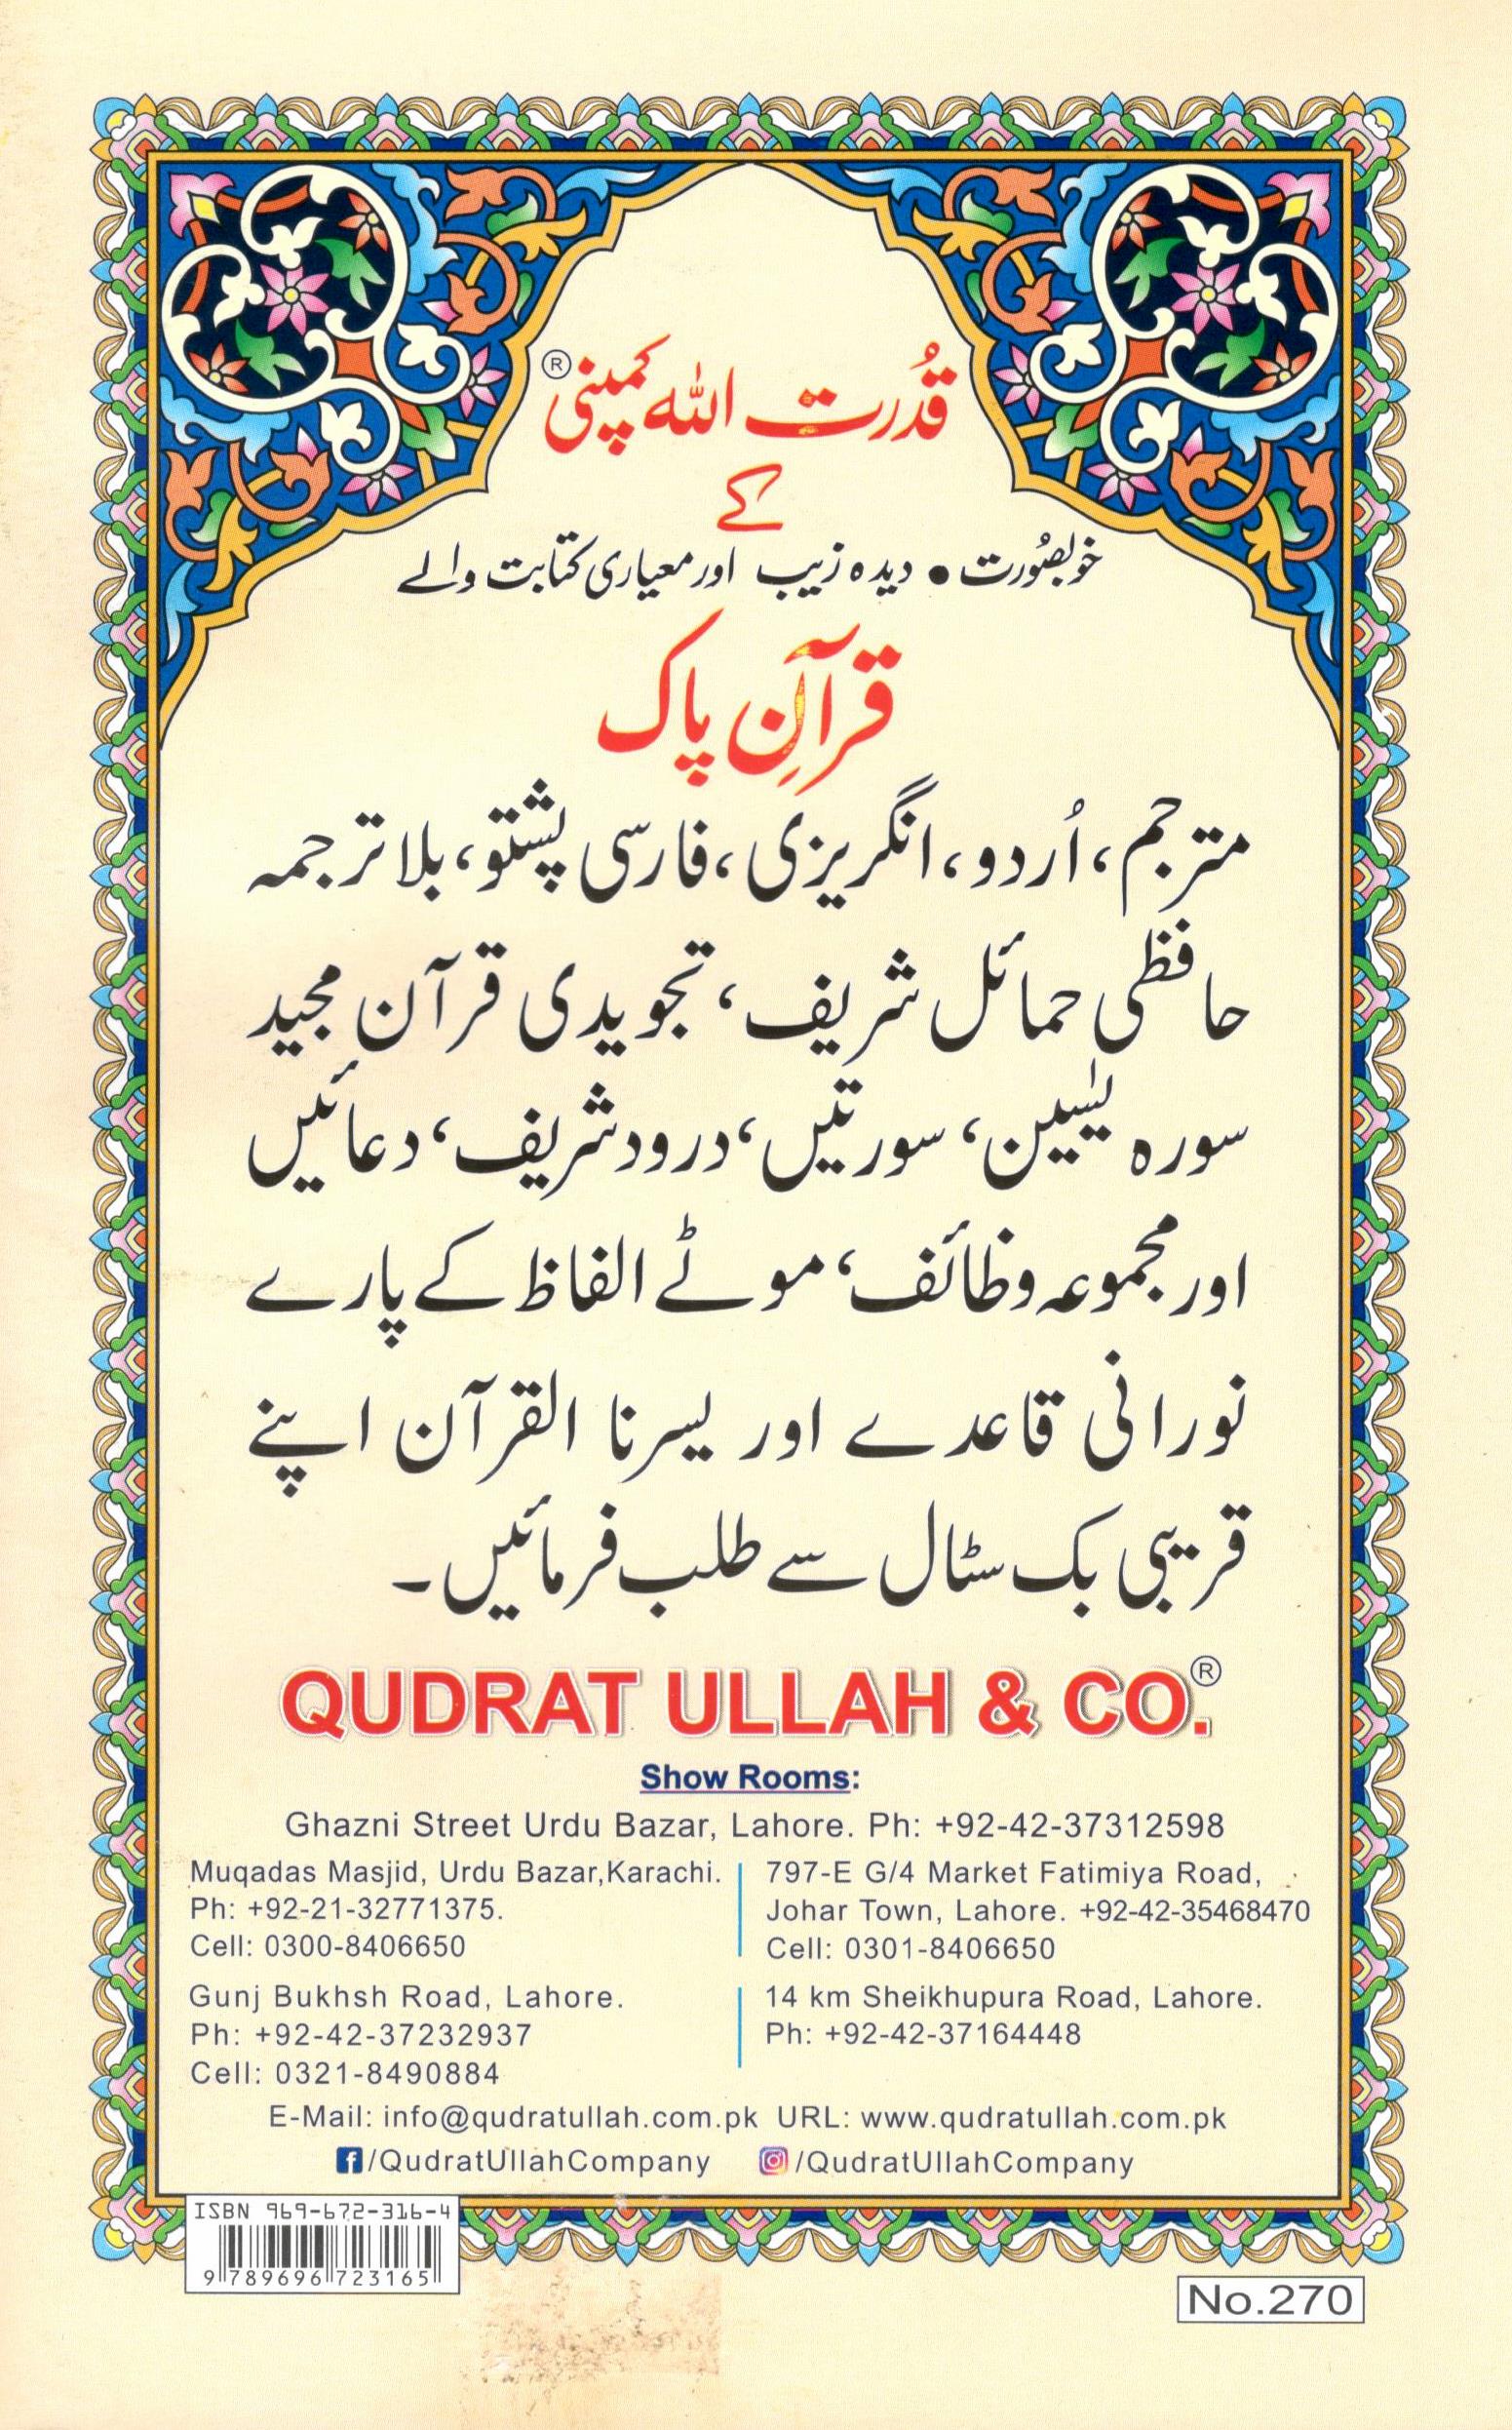 قُدرت اللہ کمپنی ®
کے
خوبصُورت • دیدہ زیب اور معیاری کتابت والے
قرآنِ پاک
مترجم، اُردو، انگریزی، فارسی پشتو، بلا ترجمہ
حافظی حمائل شریف، تجویدی قرآن مجید
سورہ یٰسیین، سورتیں، درود شریف، دعائیں
اور مجموعہ وظائف، موٹے الفاظ کے پارے
نورانی قاعدے اور یسرنا القرآن اپنے
قریبی بک سٹال سے طلب فرمائیں۔
QUDRAT ULLAH & CO.®
Show Rooms:
Ghazni Street Urdu Bazar, Lahore. Ph: +92-42-37312598
Muqadas Masjid, Urdu Bazar,Karachi.
Ph: +92-21-32771375.
Cell: 0300-8406650
797-E G/4 Market Fatimiya Road,
Johar Town, Lahore. +92-42-35468470
Cell: 0301-8406650
Gunj Bukhsh Road, Lahore.
Ph: +92-42-37232937
Cell: 0321-8490884
14 km Sheikhupura Road, Lahore.
Ph: +92-42-37164448
E-Mail: info@qudratullah.com.pk URL: www.qudratullah.com.pk
/QudratUllahCompany /QudratUllahCompany
ISBN 969-672-316-4
9 789696 723165
No.270